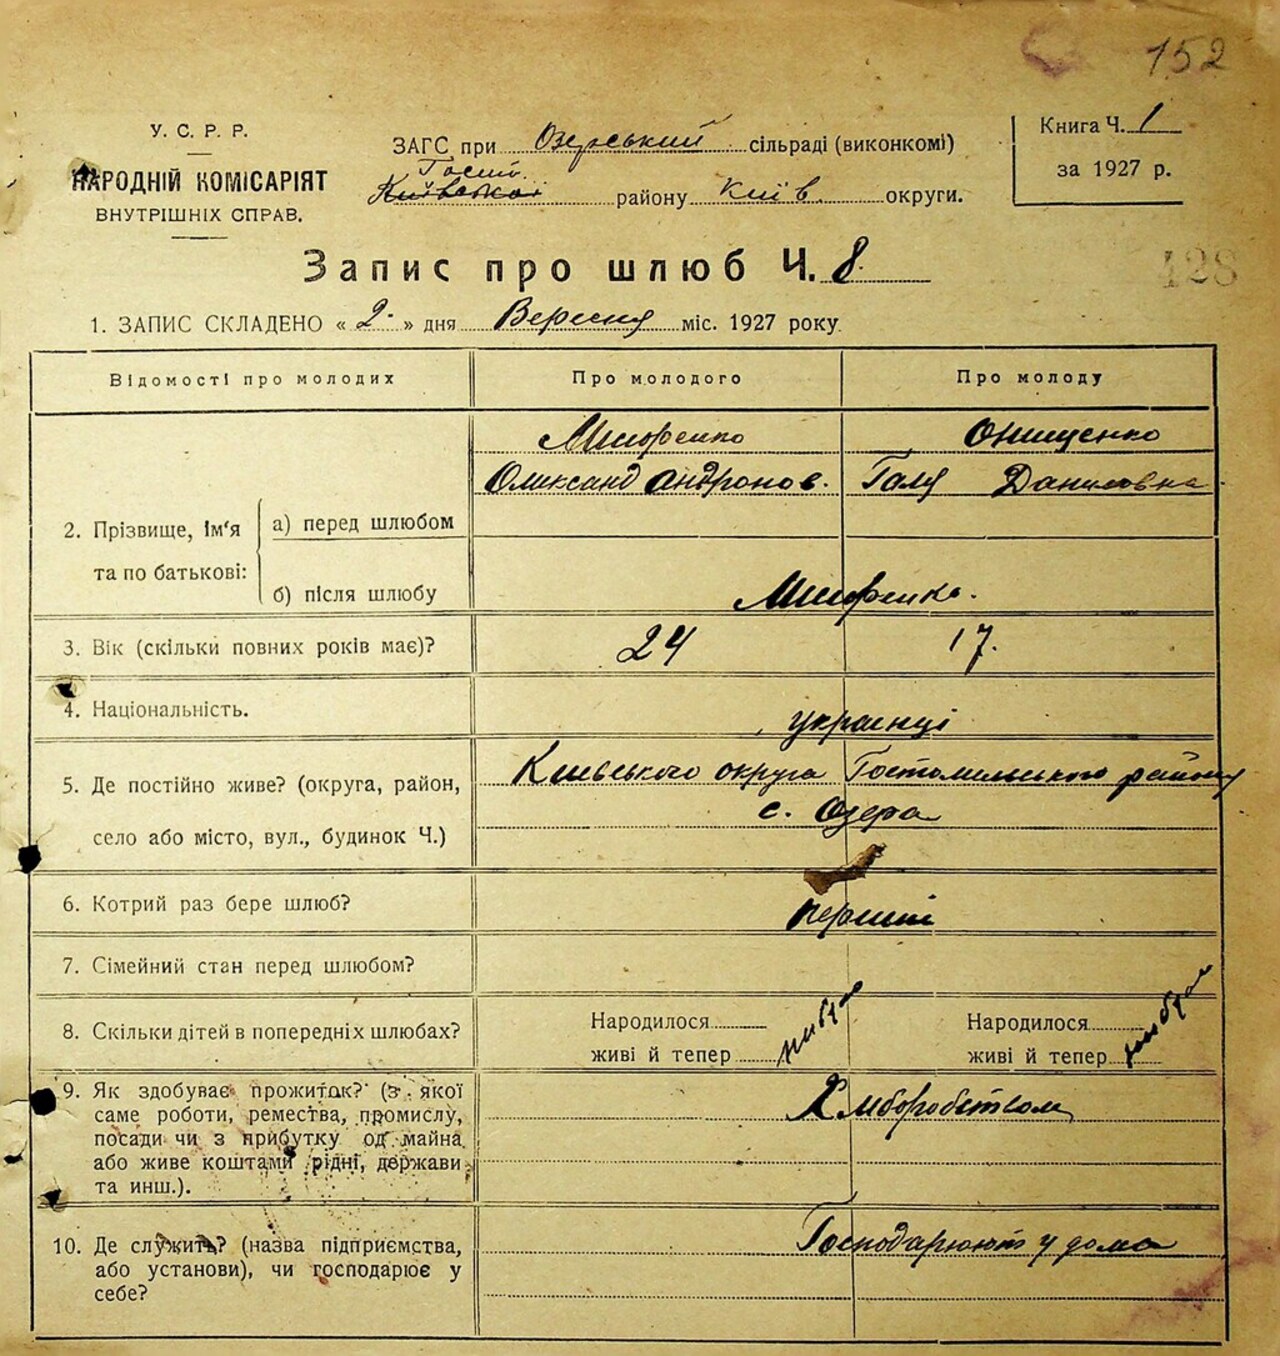 152
У. С. Р. Р.
НАРОДНІЙ КОМІСАРІЯТ
ВНУТРІШНІХ СПРАВ.
ЗАГС при Озерський сільраді (виконкомі)
Гостом.
Київської району Київ. округи.
Книга Ч. 1
за 1927 р.
Запис про шлюб Ч. 8.
428
1. ЗАПИС СКЛАДЕНО « 2. » дня Вересня міс. 1927 року.
Відомості про молодих Про молодого Про молоду
Онищенко
Олександ Андронов. Галя Даниловна
2. Прізвище, ім'я та по батькові:
а) перед шлюбом
б) після шлюбу
3. Вік (скільки повних років має)? 24 17.
4. Національність. українці
5. Де постійно живе? (округа, район, село або місто, вул., будинок Ч.)
Київського округа Гостомельського району
с. Озера
6. Котрий раз бере шлюб? перший
7. Сімейний стан перед шлюбом?
8. Скільки дітей в попередніх шлюбах?
Народилося Народилося
живі й тепер живі й тепер
9. Як здобуває прожиток? (з якої
саме роботи, ремества, промислу,
посади чи з прибутку од майна
або живе коштами рідні, держави
та инш.).
Хліборобством
10. Де служить? (назва підприємства,
або установи), чи господарює у
себе?
Господарюють у дома